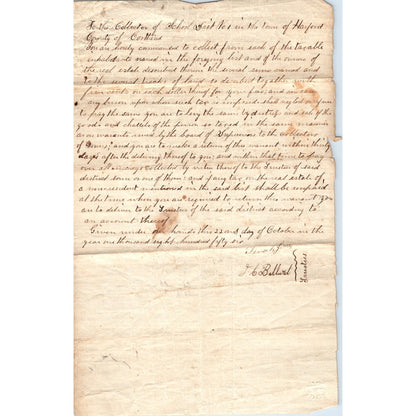 To the Collector of School Dist No 1 in the town of Harford
County of Cortland
You are hereby commanded to collect from each of the taxable
inhabitants named in the forgoing list and of the owners
of the real estate described therein the several sums named and
in the tracts of land so described together with
five cents on each dollar thereof for your fees, and in case
any person upon whom such tax is imposed shall neglect or
pay the same you are to levy the same by distress and sale of the
goods and chattels of the person so taxed in the same manner
as on warrants issued by the board of Supervisors to the Collectors
of Towns; and you are to make a return of this warrant within thirty
days after the delivery thereof to you; and within that time to pay
over all moneys collected by virtue thereof to the Trustees of said
district some or one of them; and if any tax on the real estate of
a nonresident mentioned in the said list shall be unpaid
at the time when you are required to return this warrant you
are to deliver to the Trustees of the said district according to
an account thereof
Given under our hands this 22nd day of October in the
year one thousand eight hundred fifty six
Trustees